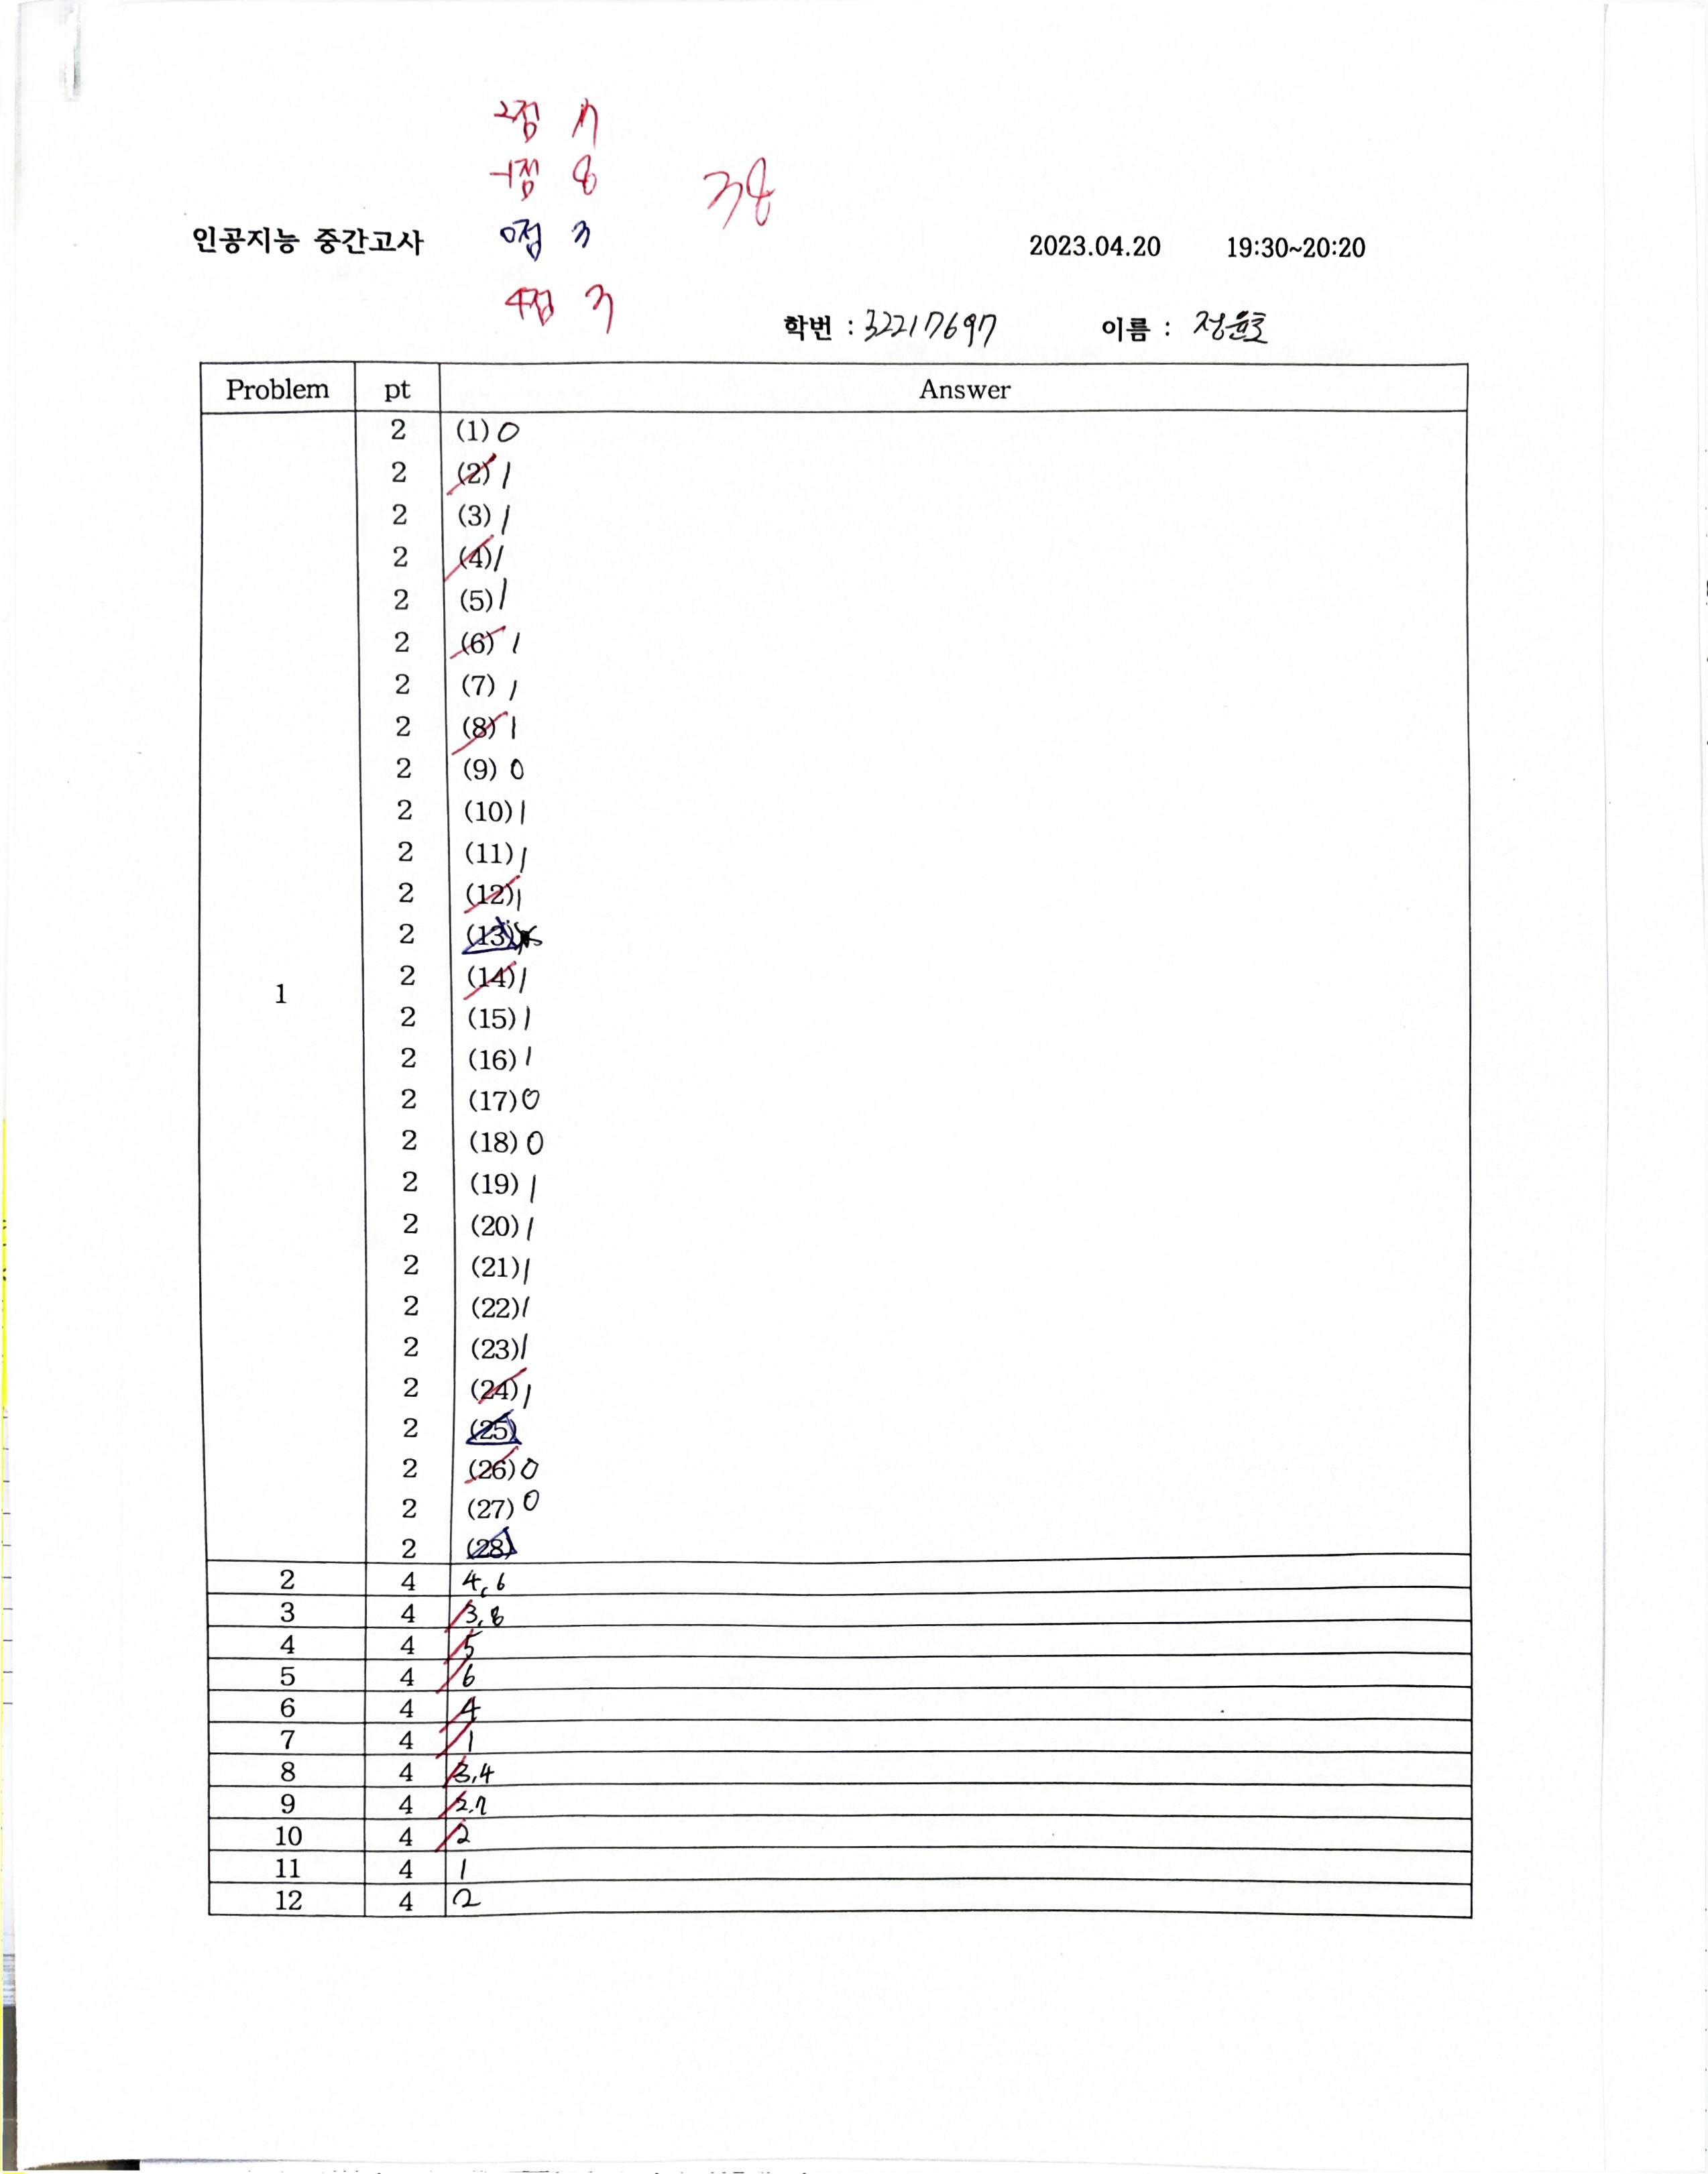 2점 17
-1점 8
38
인공지능 중간고사 0점 3 2023.04.20 19:30~20:20
4점 3
학번 : 32217697 이름 : 정윤호
Problem pt Answer
1
2 (1) 0
2 (2) 1
2 (3) 1
2 (4) 1
2 (5) 1
2 (6) 1
2 (7) 1
2 (8) 1
2 (9) 0
2 (10) 1
2 (11) 1
2 (12) 1
2 (13)
2 (14) 1
2 (15) 1
2 (16) 1
2 (17) 0
2 (18) 0
2 (19) 1
2 (20) 1
2 (21) 1
2 (22) 1
2 (23) 1
2 (24) 1
2 (25)
2 (26) 0
2 (27) 0
2 (28)
2 4 4, 6
3 4 3, 8
4 4 5
5 4 6
6 4 4
7 4 1
8 4 3, 4
9 4 2.7
10 4 2
11 4 1
12 4 2